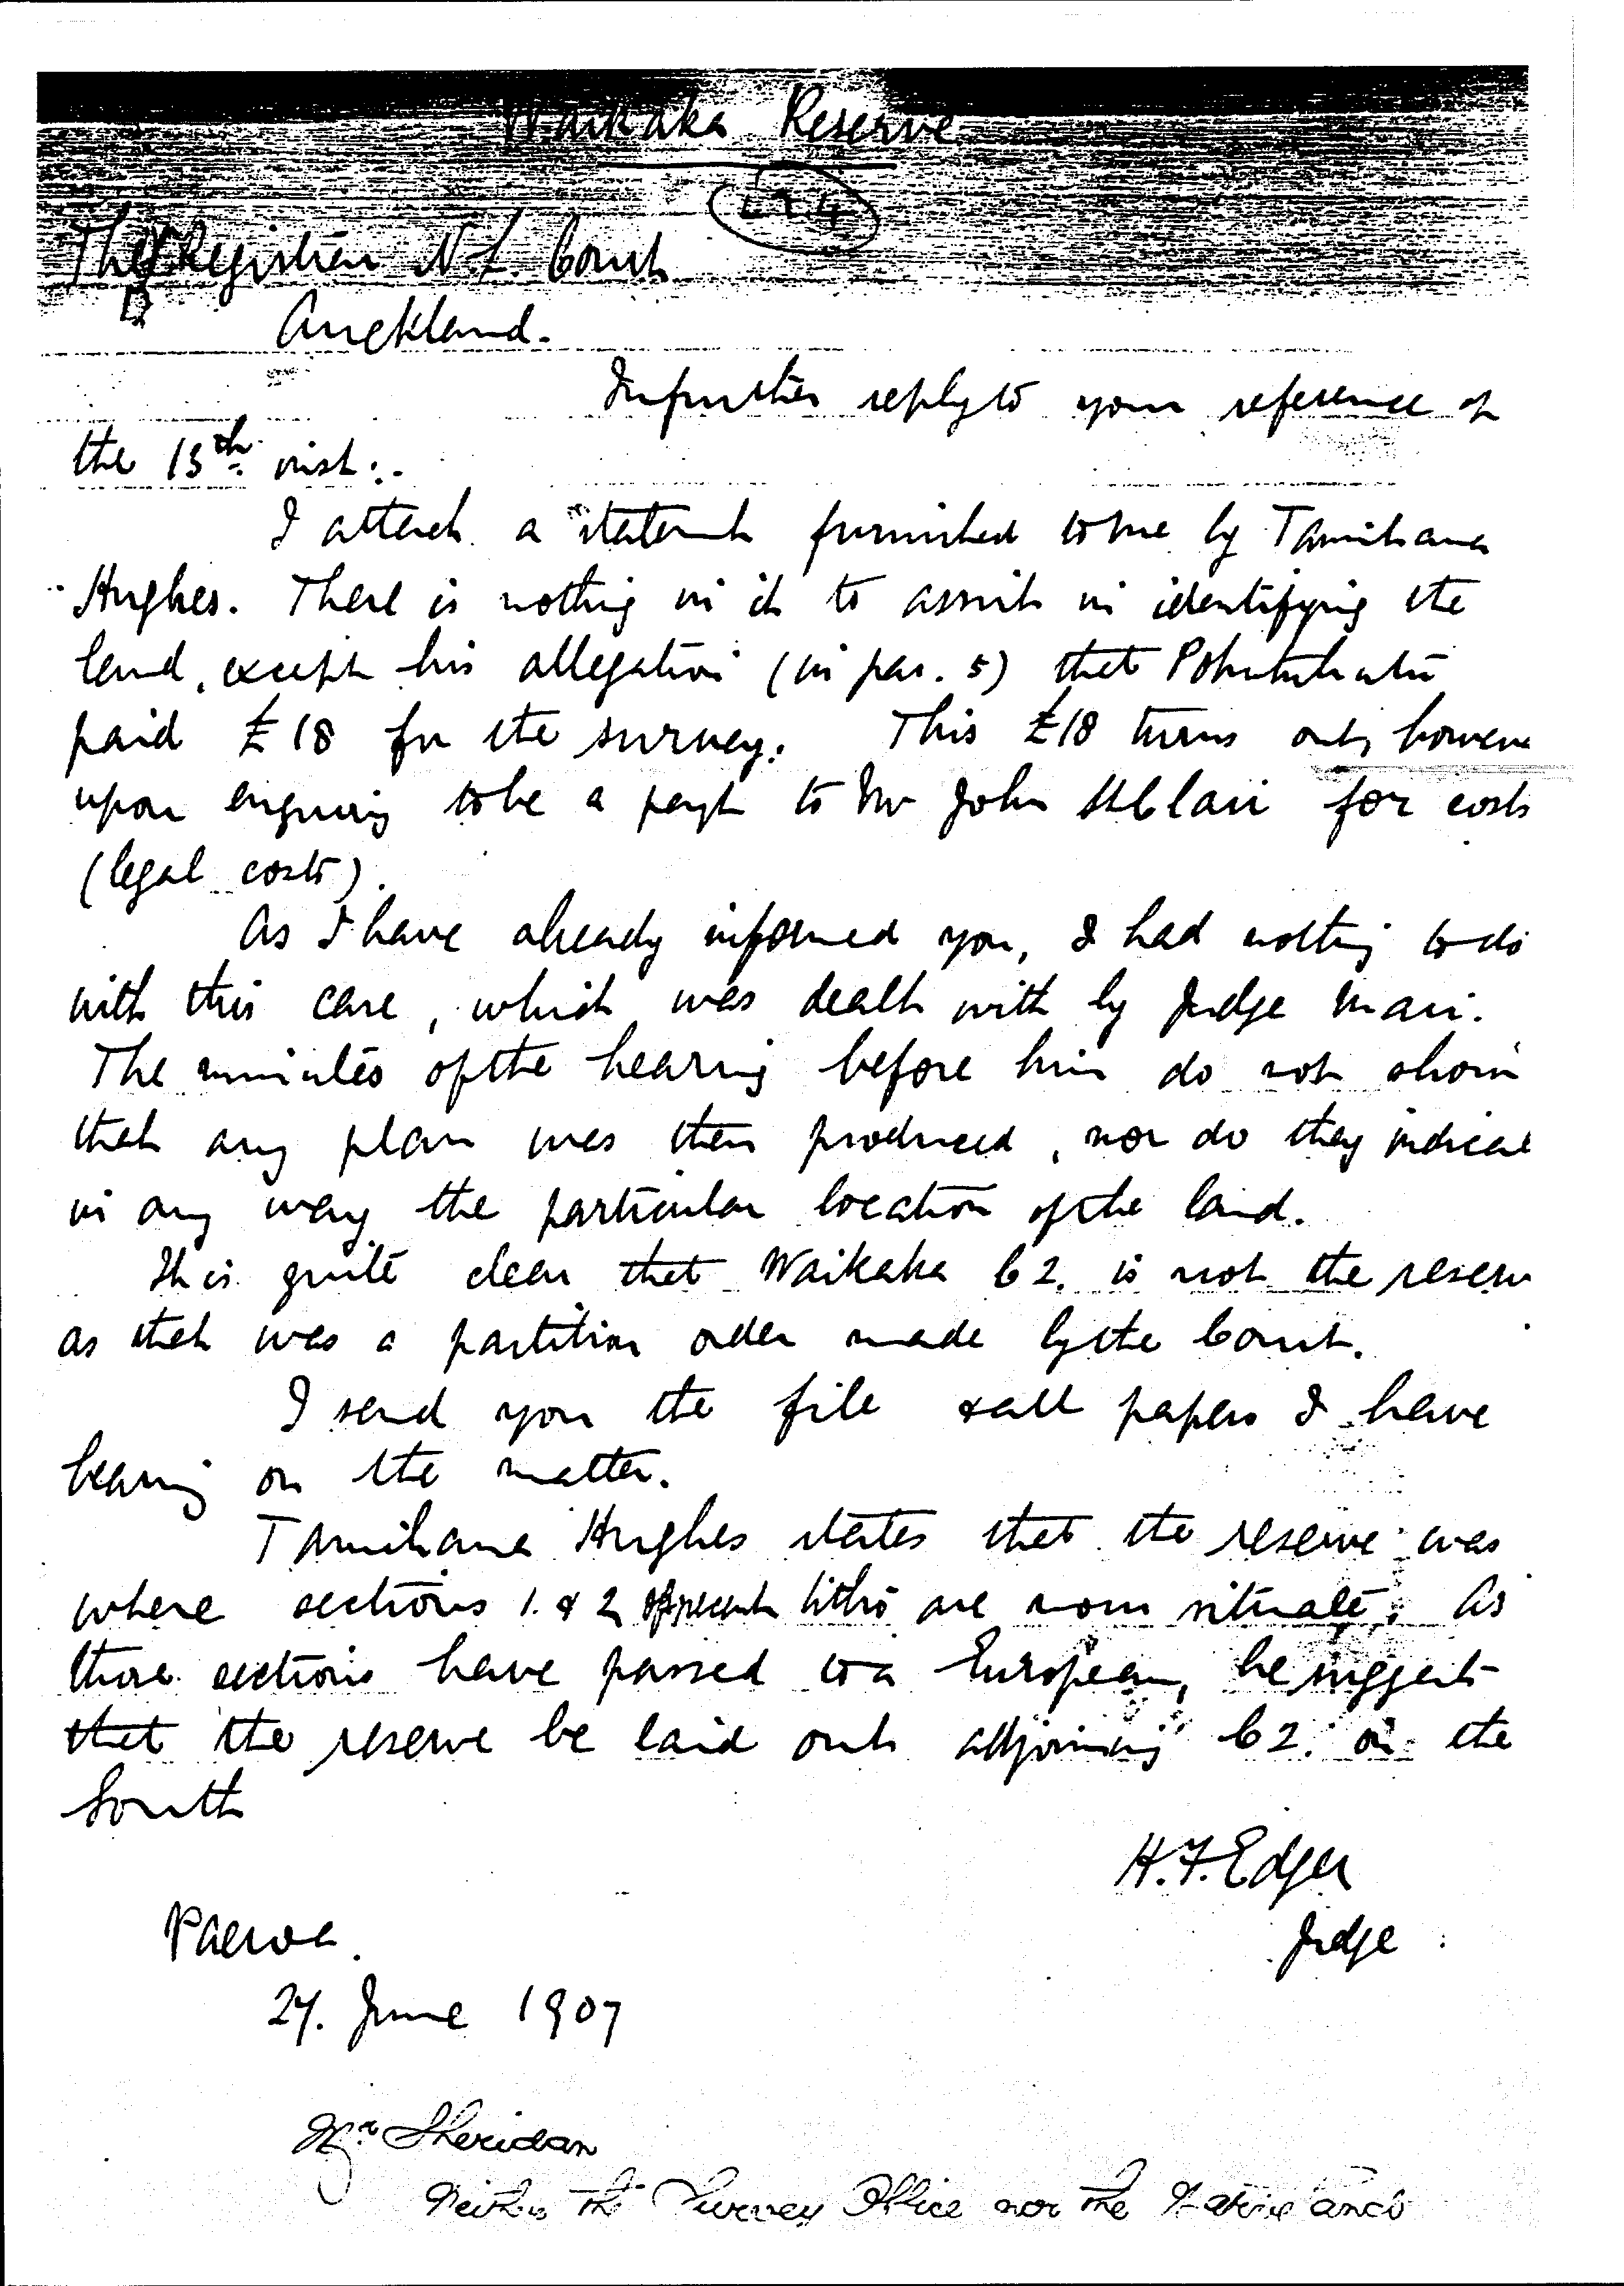 Waikaka Reserve
The Registrar N.L. Court
Auckland.
In further reply to your reference of
the 13th inst:-
I attach a statemt furnished to me by Tamihana
Hughes. There is nothing in it to assist in identifying the
land, except his allegation (in par. 5) that
paid £18 for the survey. This £18 turns out, however
upon enquiry to be a paymt to Mr John for costs
(legal costs).
As I have already informed you, I had nothing to do
with this case, which was dealt with by Judge Mair.
The minutes of the hearing before him do not show
that any plan was then produced, nor do they indicate
in any way the particular location of the land.
It is quite clear that Waikaka C2. is not the reserve
as that was a partition order made by the Court.
I send you the file & all papers I have
bearing on the matter.
Tamihana Hughes states that the reserve was
where sections 1. & 2 of present litho are now situate. As
those sections have passed to a European, he suggests
that the reserve be laid out adjoining C2. on the
South
H.F. Edger
Judge
Paeroa.
27. June 1907
Mr Sheridan
Neither the Survey Office nor the Native Land